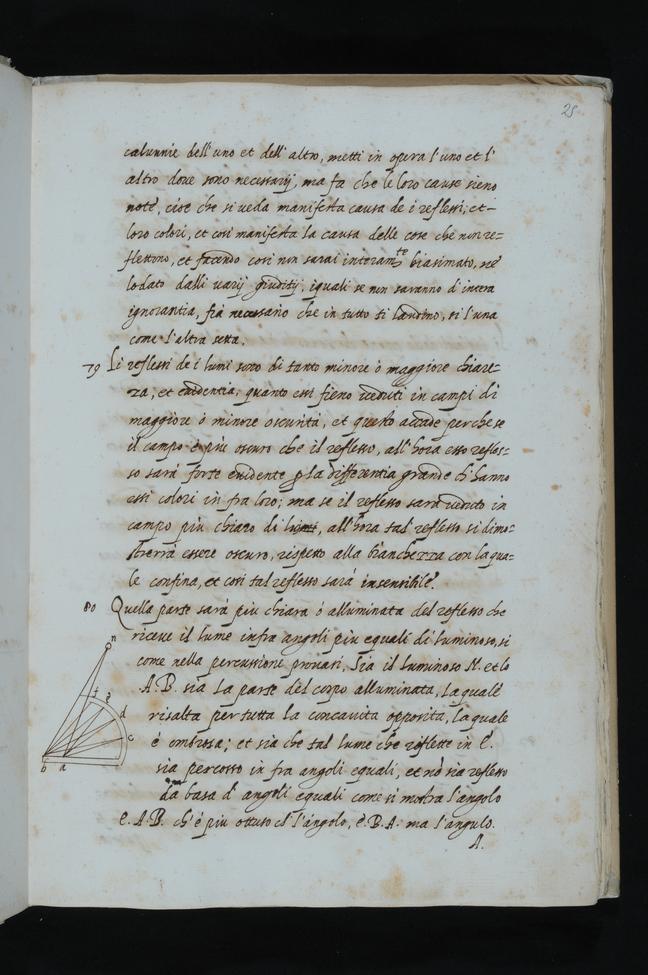 25
calunnie dell'uno et dell'altro, metti in opera l'uno et l'
altro doue sono necessarij, ma fa che le loro cause sieno
note, cioè che si ueda manifesta causa de i reflessi, et
loro colori, et così manifesta la causa delle cose che non re=
flettono, et facendo così non sarai interamte biasimato, nè
lodato dalli uarij giuditij, iquali se non saranno d'intera
ignorantia, fia necessario che in tutto ti laudino, si l'una
come l'altra setta.
79 Li reflessi de i lumi sono di tanto minore ò maggiore chiarez=
za, et euidentia, quanto essi fieno ueduti in campi di
maggiore ò minore oscurità, et questo accade perche se
il campo è più oscuro che il reflesso, all'hora esso refles=
so sarà forte euidente p la differentia grande ch'hanno
essi colori in fra loro; ma se il reflesso sarà ueduto in
campo più chiaro di lui, all'hora tal reflesso si dimo=
strerrà essere oscuro, rispetto alla bianchezza con la qua=
le confina, et così tal reflesso sarà insensibile.
80 Quella parte sarà più chiara ò alluminata del reflesso che
riceue il lume infra angoli più equali di luminoso, si
come nella percussione prouasi, sia il luminoso N. et lo
A.B. sia la parte del corpo alluminata, la quale
risalta per tutta la concauità opposita, la quale
è ombrosa; et sia che tal lume che riflette in E.
sia percosso in fra angoli equali, et nò sia reflesso
da basa d'angoli equali come si mostra l'angolo
E.A.B. ch'è più ottuso ch'l'àngolo, E.B.A. ma l'angulo.
A.
n
f e
d
c
b a